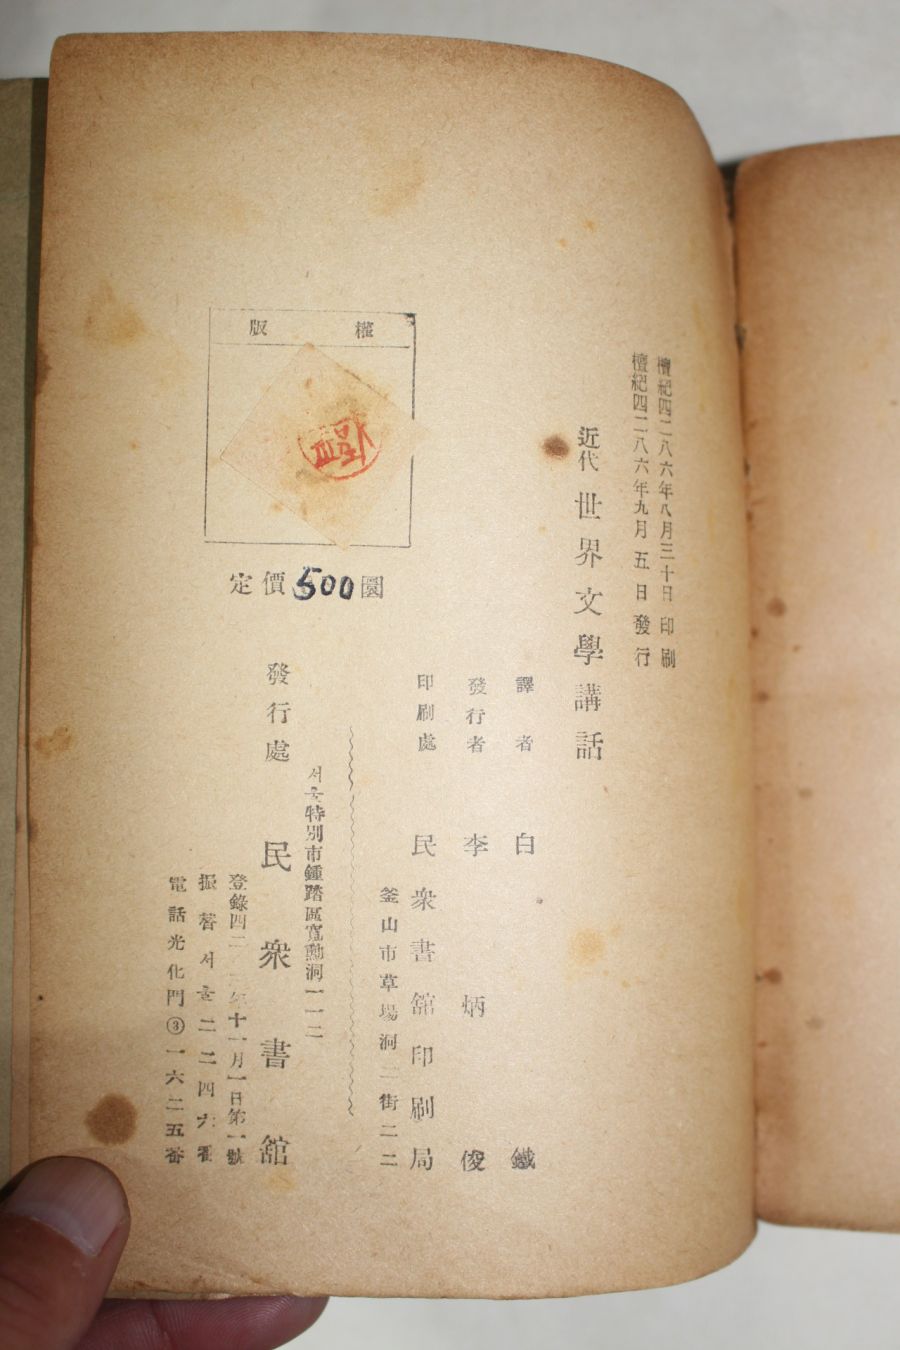 檀紀四二八六年八月三十日 印刷
檀紀四二八六年九月五日 發行
近代 世界文學講話
譯者 白鐵
發行者 李炳俊
印刷處 民衆書舘印刷局
釜山市草場洞二街二二
서울特別市鍾路區寬勳洞一一二
發行處 民衆書舘
登錄四二 年十一月一日第一號
振替서울二二四六番
電話光化門③一六二五番
版權
定價500圜